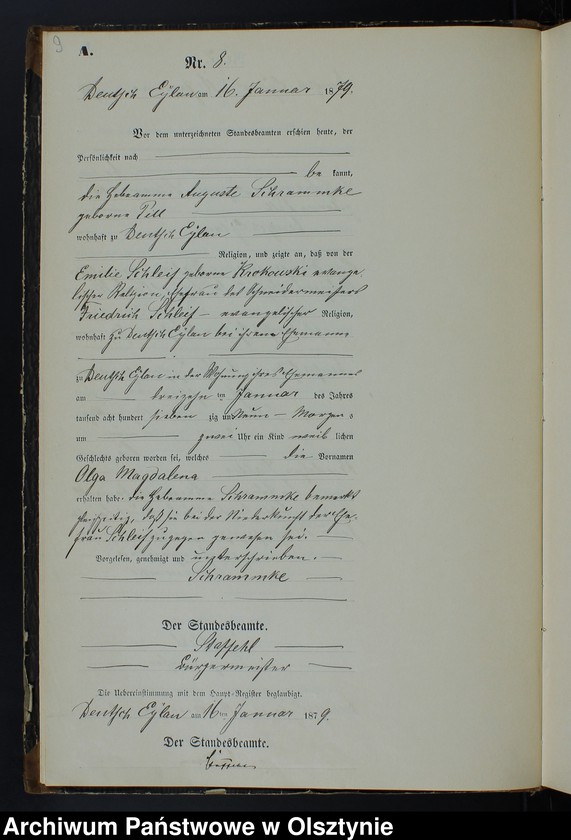 9
A.
Nr. 8.
Deutsch Eylau am 16. Januar 1879.
Vor dem unterzeichneten Standesbeamten erschien heute, der
Persönlichkeit nach
be kannt,
die Hebeamme Auguste Schrammke
geborne Till
wohnhaft zu Deutsch Eylau
Religion, und zeigte an, daß von der
Emilie Schleif geborne Krokowski evange
lischer Religion, Ehefrau des Schneidermeisters
Friedrich Schleif – evangelischer Religion,
wohnhaft zu Deutsch Eylau bei ihrem Ehemanne
zu Deutsch Eylau in der Wohnung ihres Ehemannes
am dreizehn ten Januar des Jahres
tausend acht hundert sieben zig und neun – Morgens
um zwei Uhr ein Kind weib lichen
Geschlechts geboren worden sei, welches die Vornamen
Olga Magdalena
erhalten habe. die Hebeamme Schrammke bemerkt
gleichzeitig, daß sie bei der Niederkunft der Ehe-
frau Schleif zugegen gewesen sei.
Vorgelesen, genehmigt und unterschrieben.
Schrammke
Der Standesbeamte.
Staffehl
Bürgermeister
Die Uebereinstimmung mit dem Haupt-Register beglaubigt.
Deutsch Eylau am 16ten Januar 1879.
Der Standesbeamte.
Archiwum Państwowe w Olsztynie